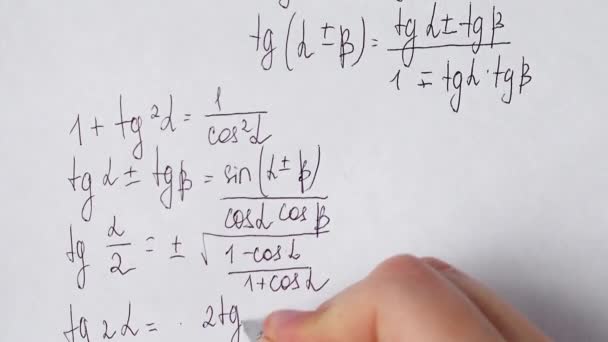 tg(α±β) = (tg α ± tg β)/(1 ∓ tg α · tg β)
1 + tg²α = 1/cos²α
tg α ± tg β = sin(α ± β)/(cos α cos β)
tg α/2 = ± √((1 - cos α)/(1 + cos α))
tg 2α = · 2tg